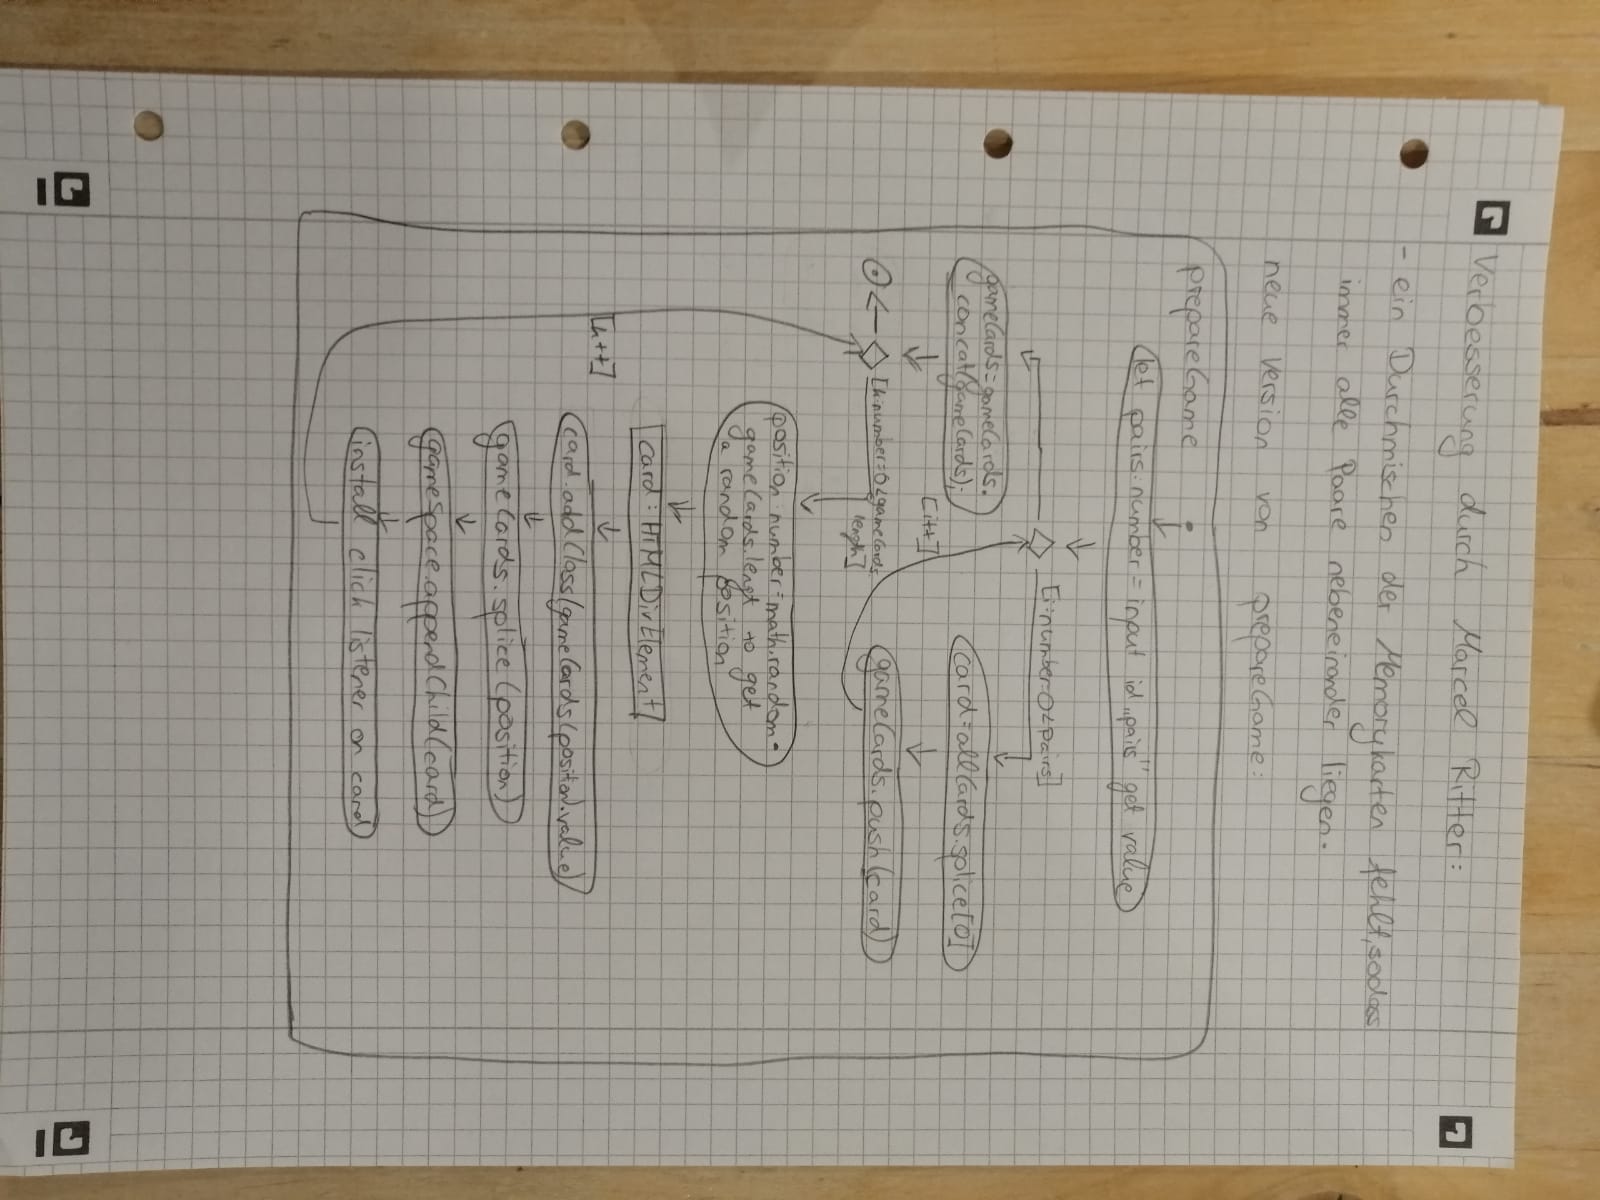 Verbesserung durch Marcel Ritter:
- ein Durchmischen der Memorykarten fehlt, sodass
immer alle Paare nebeneinander liegen.
neue Version von prepareGame:
prepareGame
let pairs:number = input id "pais" get value
[i:number=0<pairs]
gameCards=gameCards.
concat(gameCards);
card=allCards.splice[0]
[i++]
gameCards.push(card)
[h:number=0<gameCards.
length]
position:number=math.random*
gameCards.lengt to get
a random position
card: HTMLDivElement
[h++]
card.addClass(gameCards(position).value)
gameCards.splice(position)
gameSpace.appendChild(card)
install click listener on card